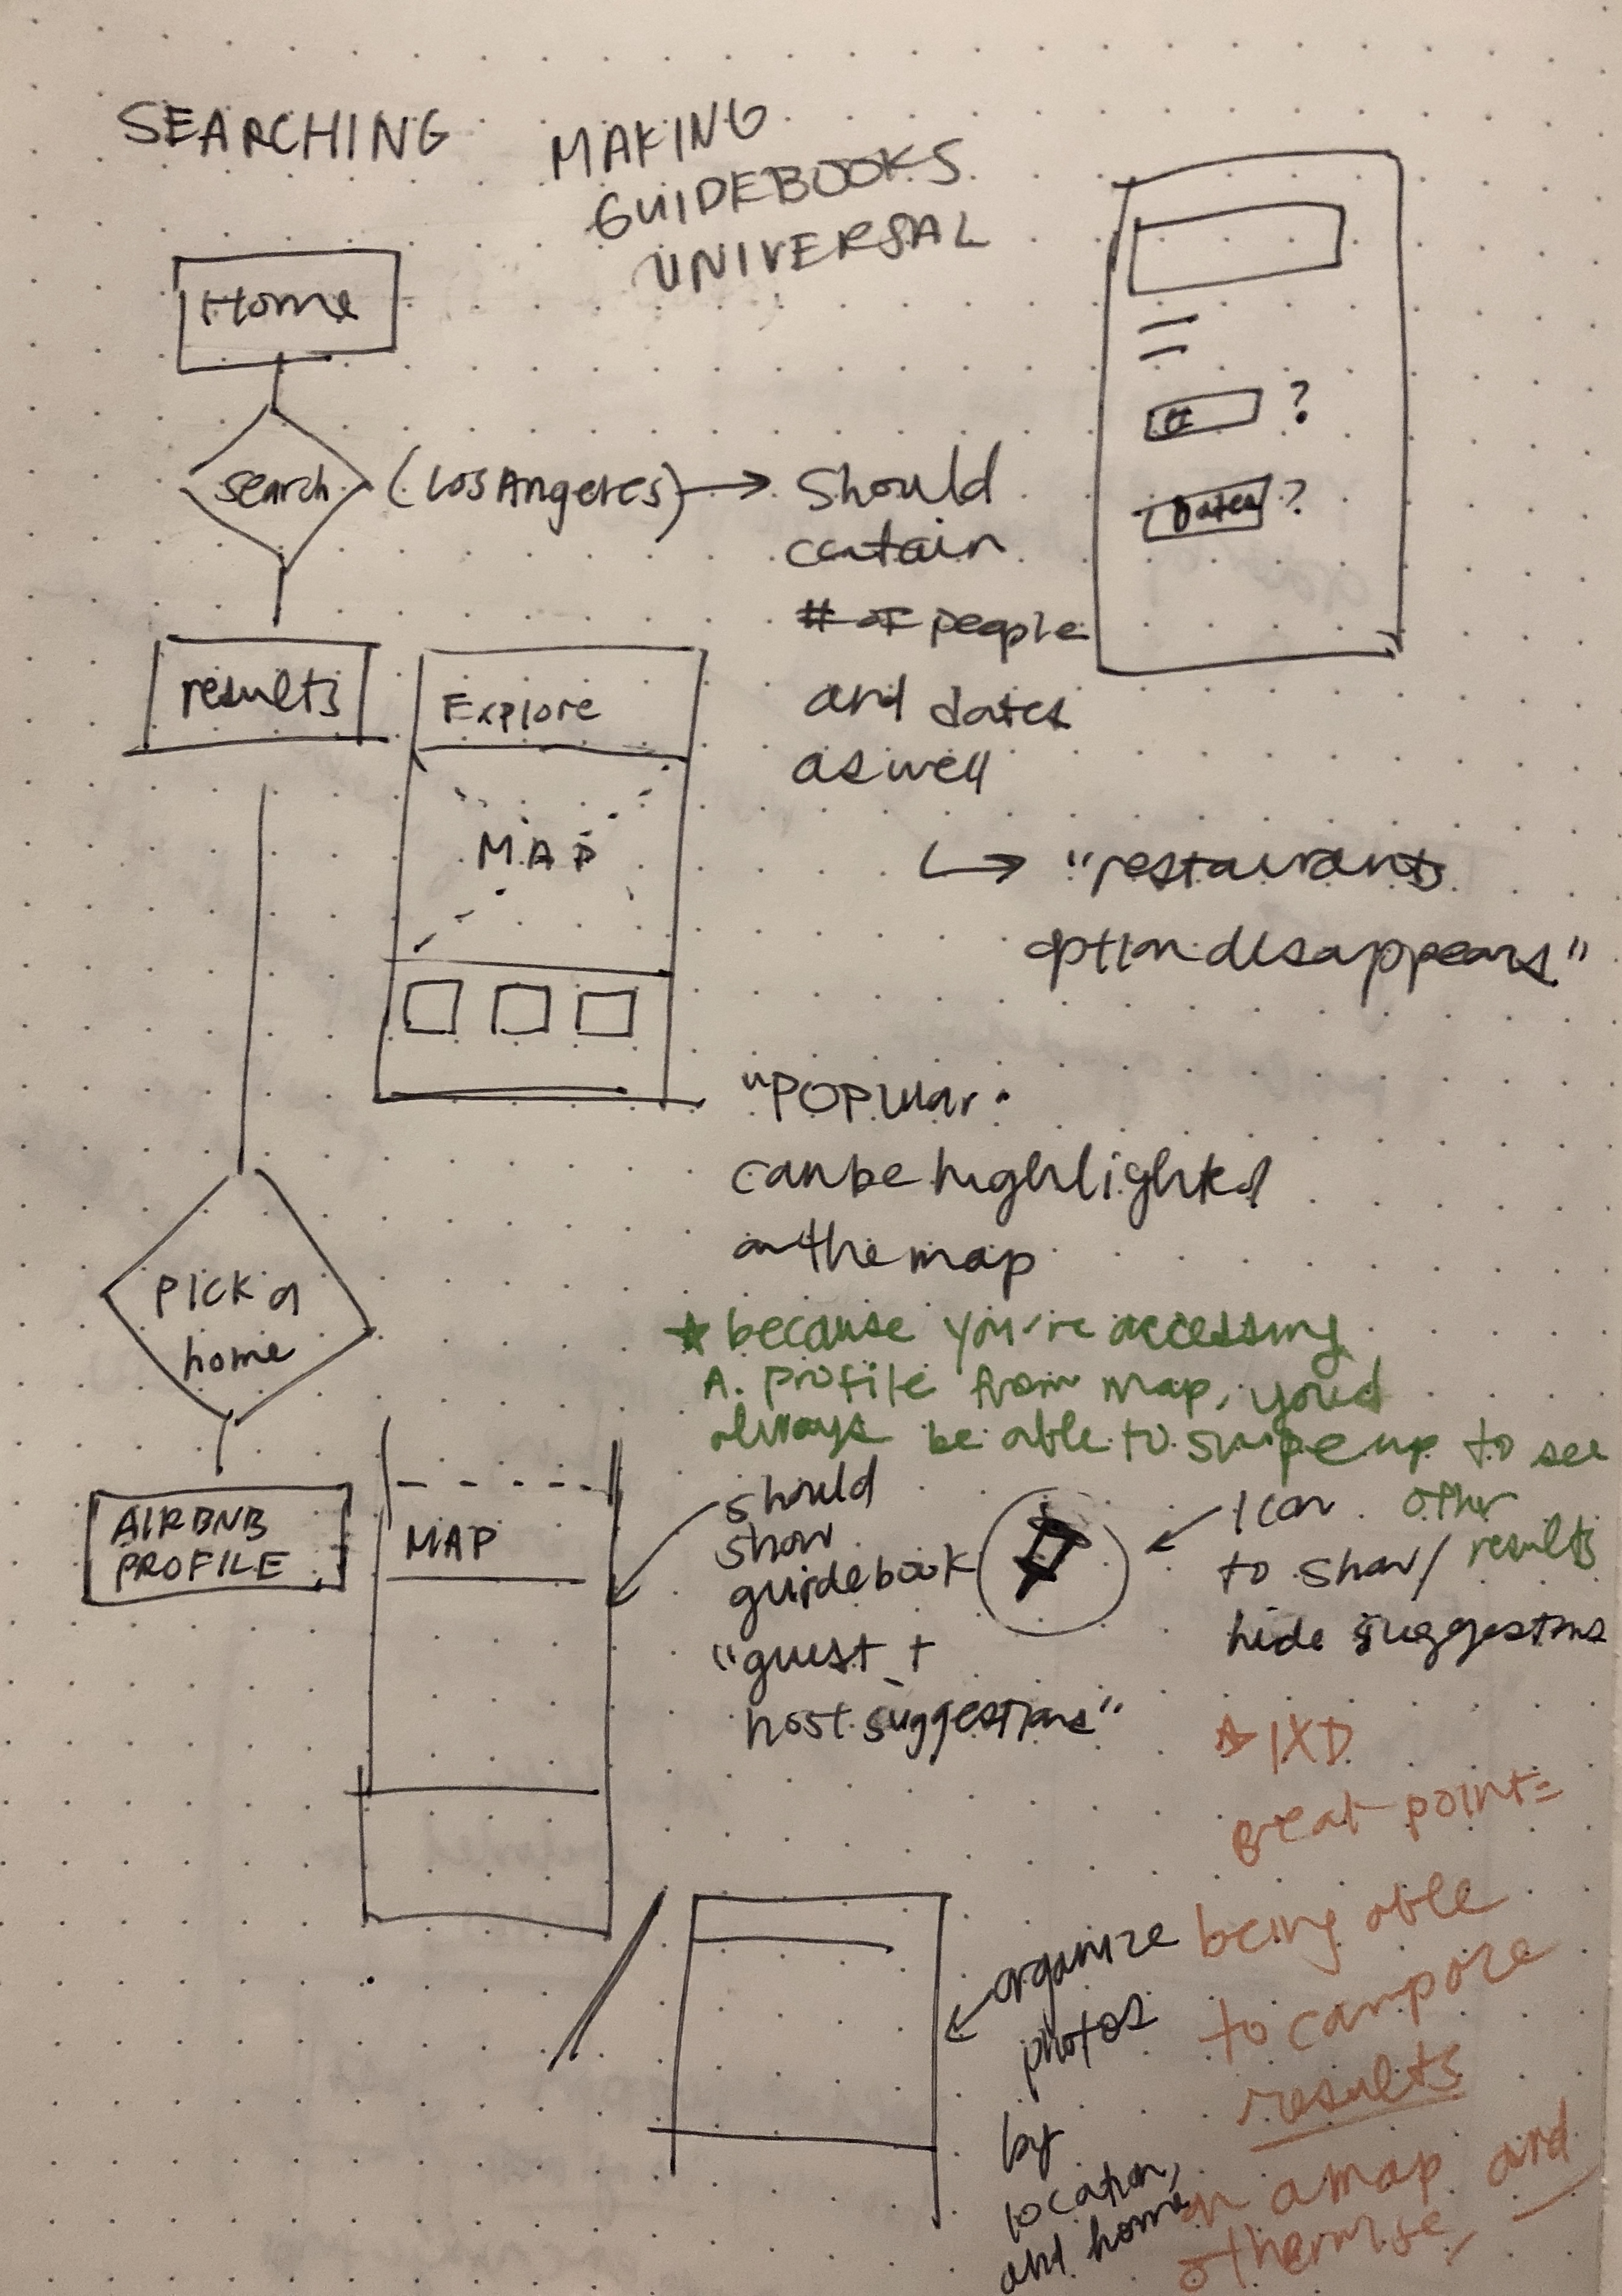 SEARCHING
MAKING
GUIDEBOOKS
UNIVERSAL
Home
search
(Los Angeles)
Should
contain
# of people
and dates
as well
#
?
Dates
?
"restaurants
option disappears"
results
Explore
MAP
"POPular"
can be highlighted
on the map
pick a
home
★ because you're accessing
A. profile from map, you'd
always be able to swipe up to see
other
results
AIRBNB
PROFILE
MAP
should
show
guidebook
"guest +
host suggestions"
Icon
to show/
hide suggestions
☆ IXD
great point =
being able
to compare
results
on a map and
otherwise,
organize
photos
by
location,
and home